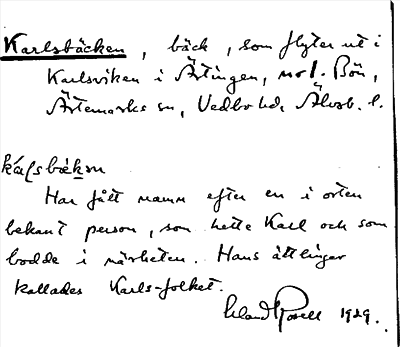 Karlsbäcken, bäck, som flyter ut i
Karlsviken i Ärtingen, no l. Bön,
Ärtemarks sn, Vedbo hd, Älvsb. l.
Har fått namn efter en i orten
bekant person, som hette Karl och som
bodde i närheten. Hans ättlingar
kallades Karls-folket.
1929.